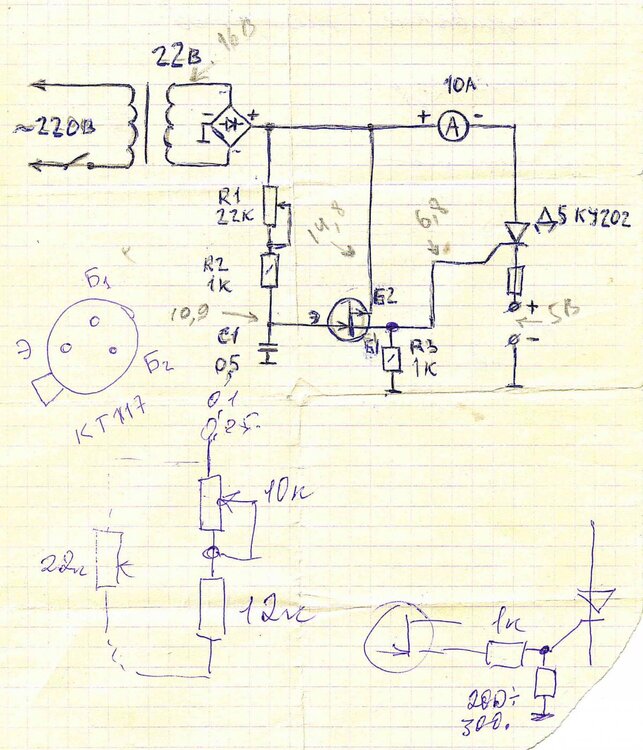 22В
16В
10А
+
-
А
~220В
-
+
-
R1
22К
14,8
6,8
Д5 КУ202
R2
1К
Б1
10,9
Э
Б2
+
5В
-
C1
0,5
Б1
R3
1К
Э
Б2
КТ117
0,1
0,25
10к
22к
12к
1к
200÷
300.